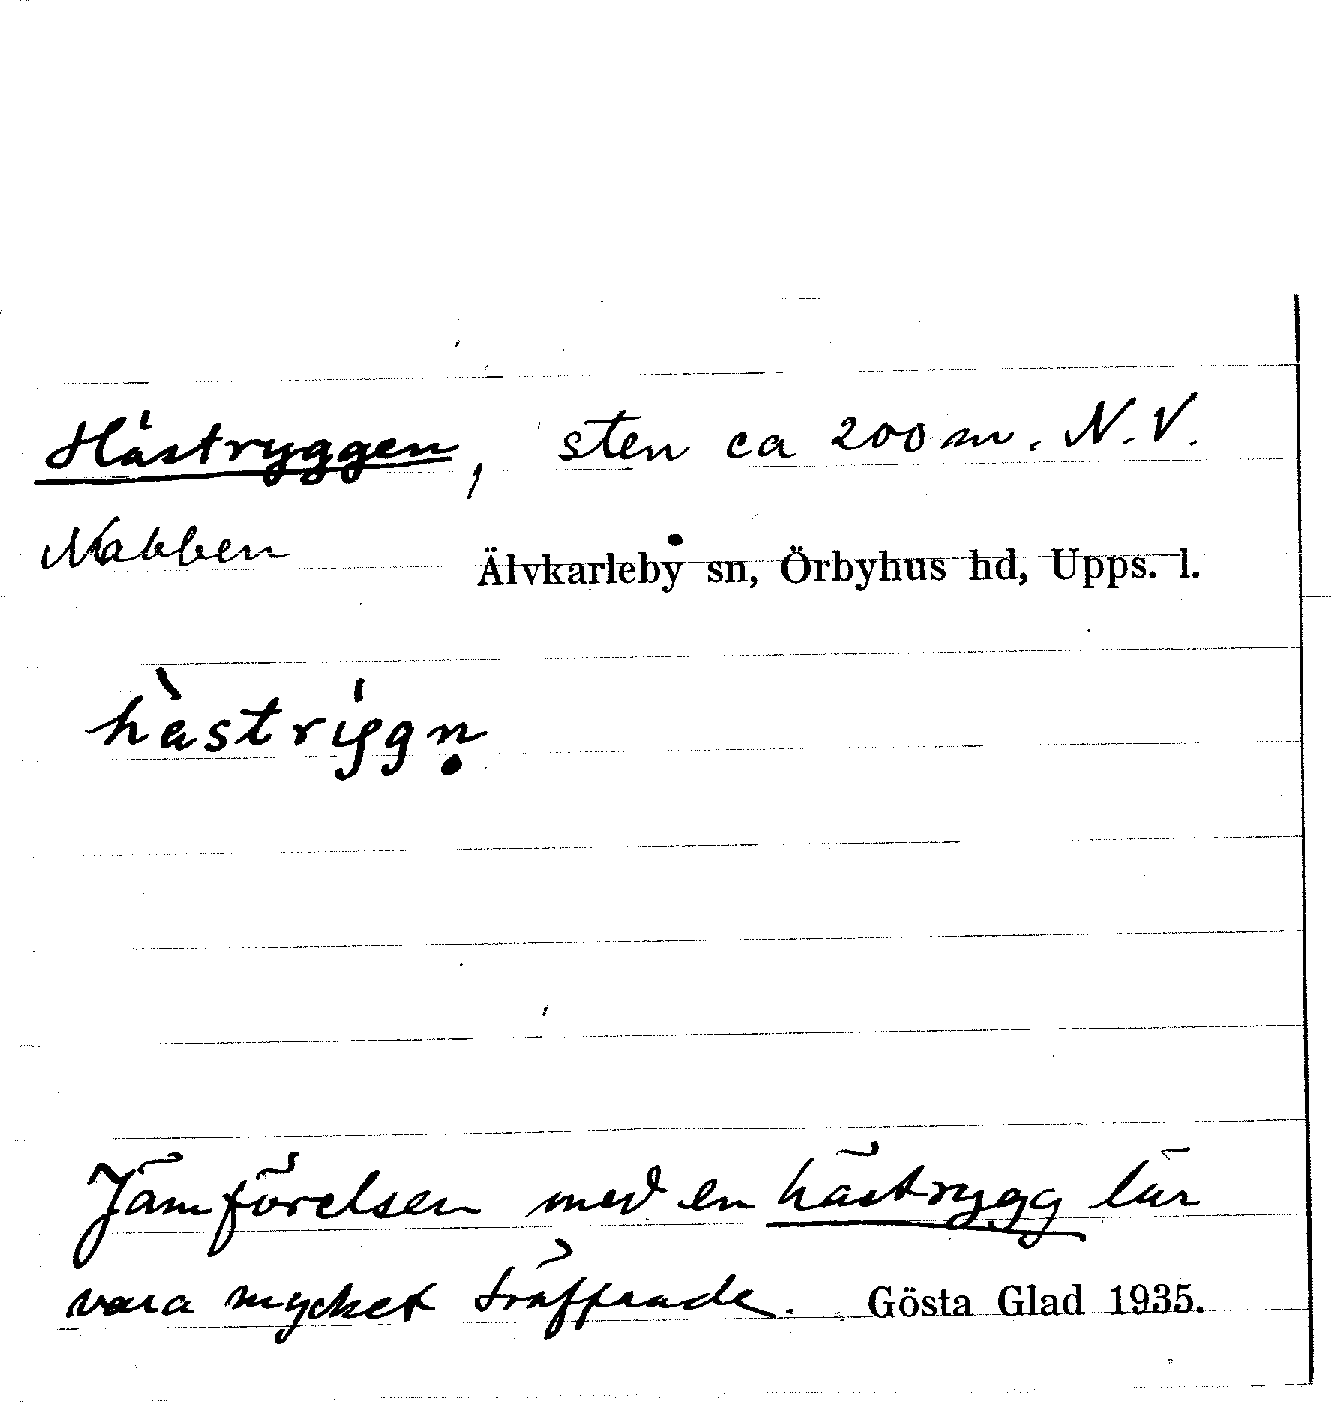 Hästryggen, sten ca 200 m. N.V.
Nabben Älvkarleby sn, Örbyhus hd, Upps. l.
hàstrýggṇ
Jämförelsen med en hästrygg lär
vara mycket träffande. Gösta Glad 1935.